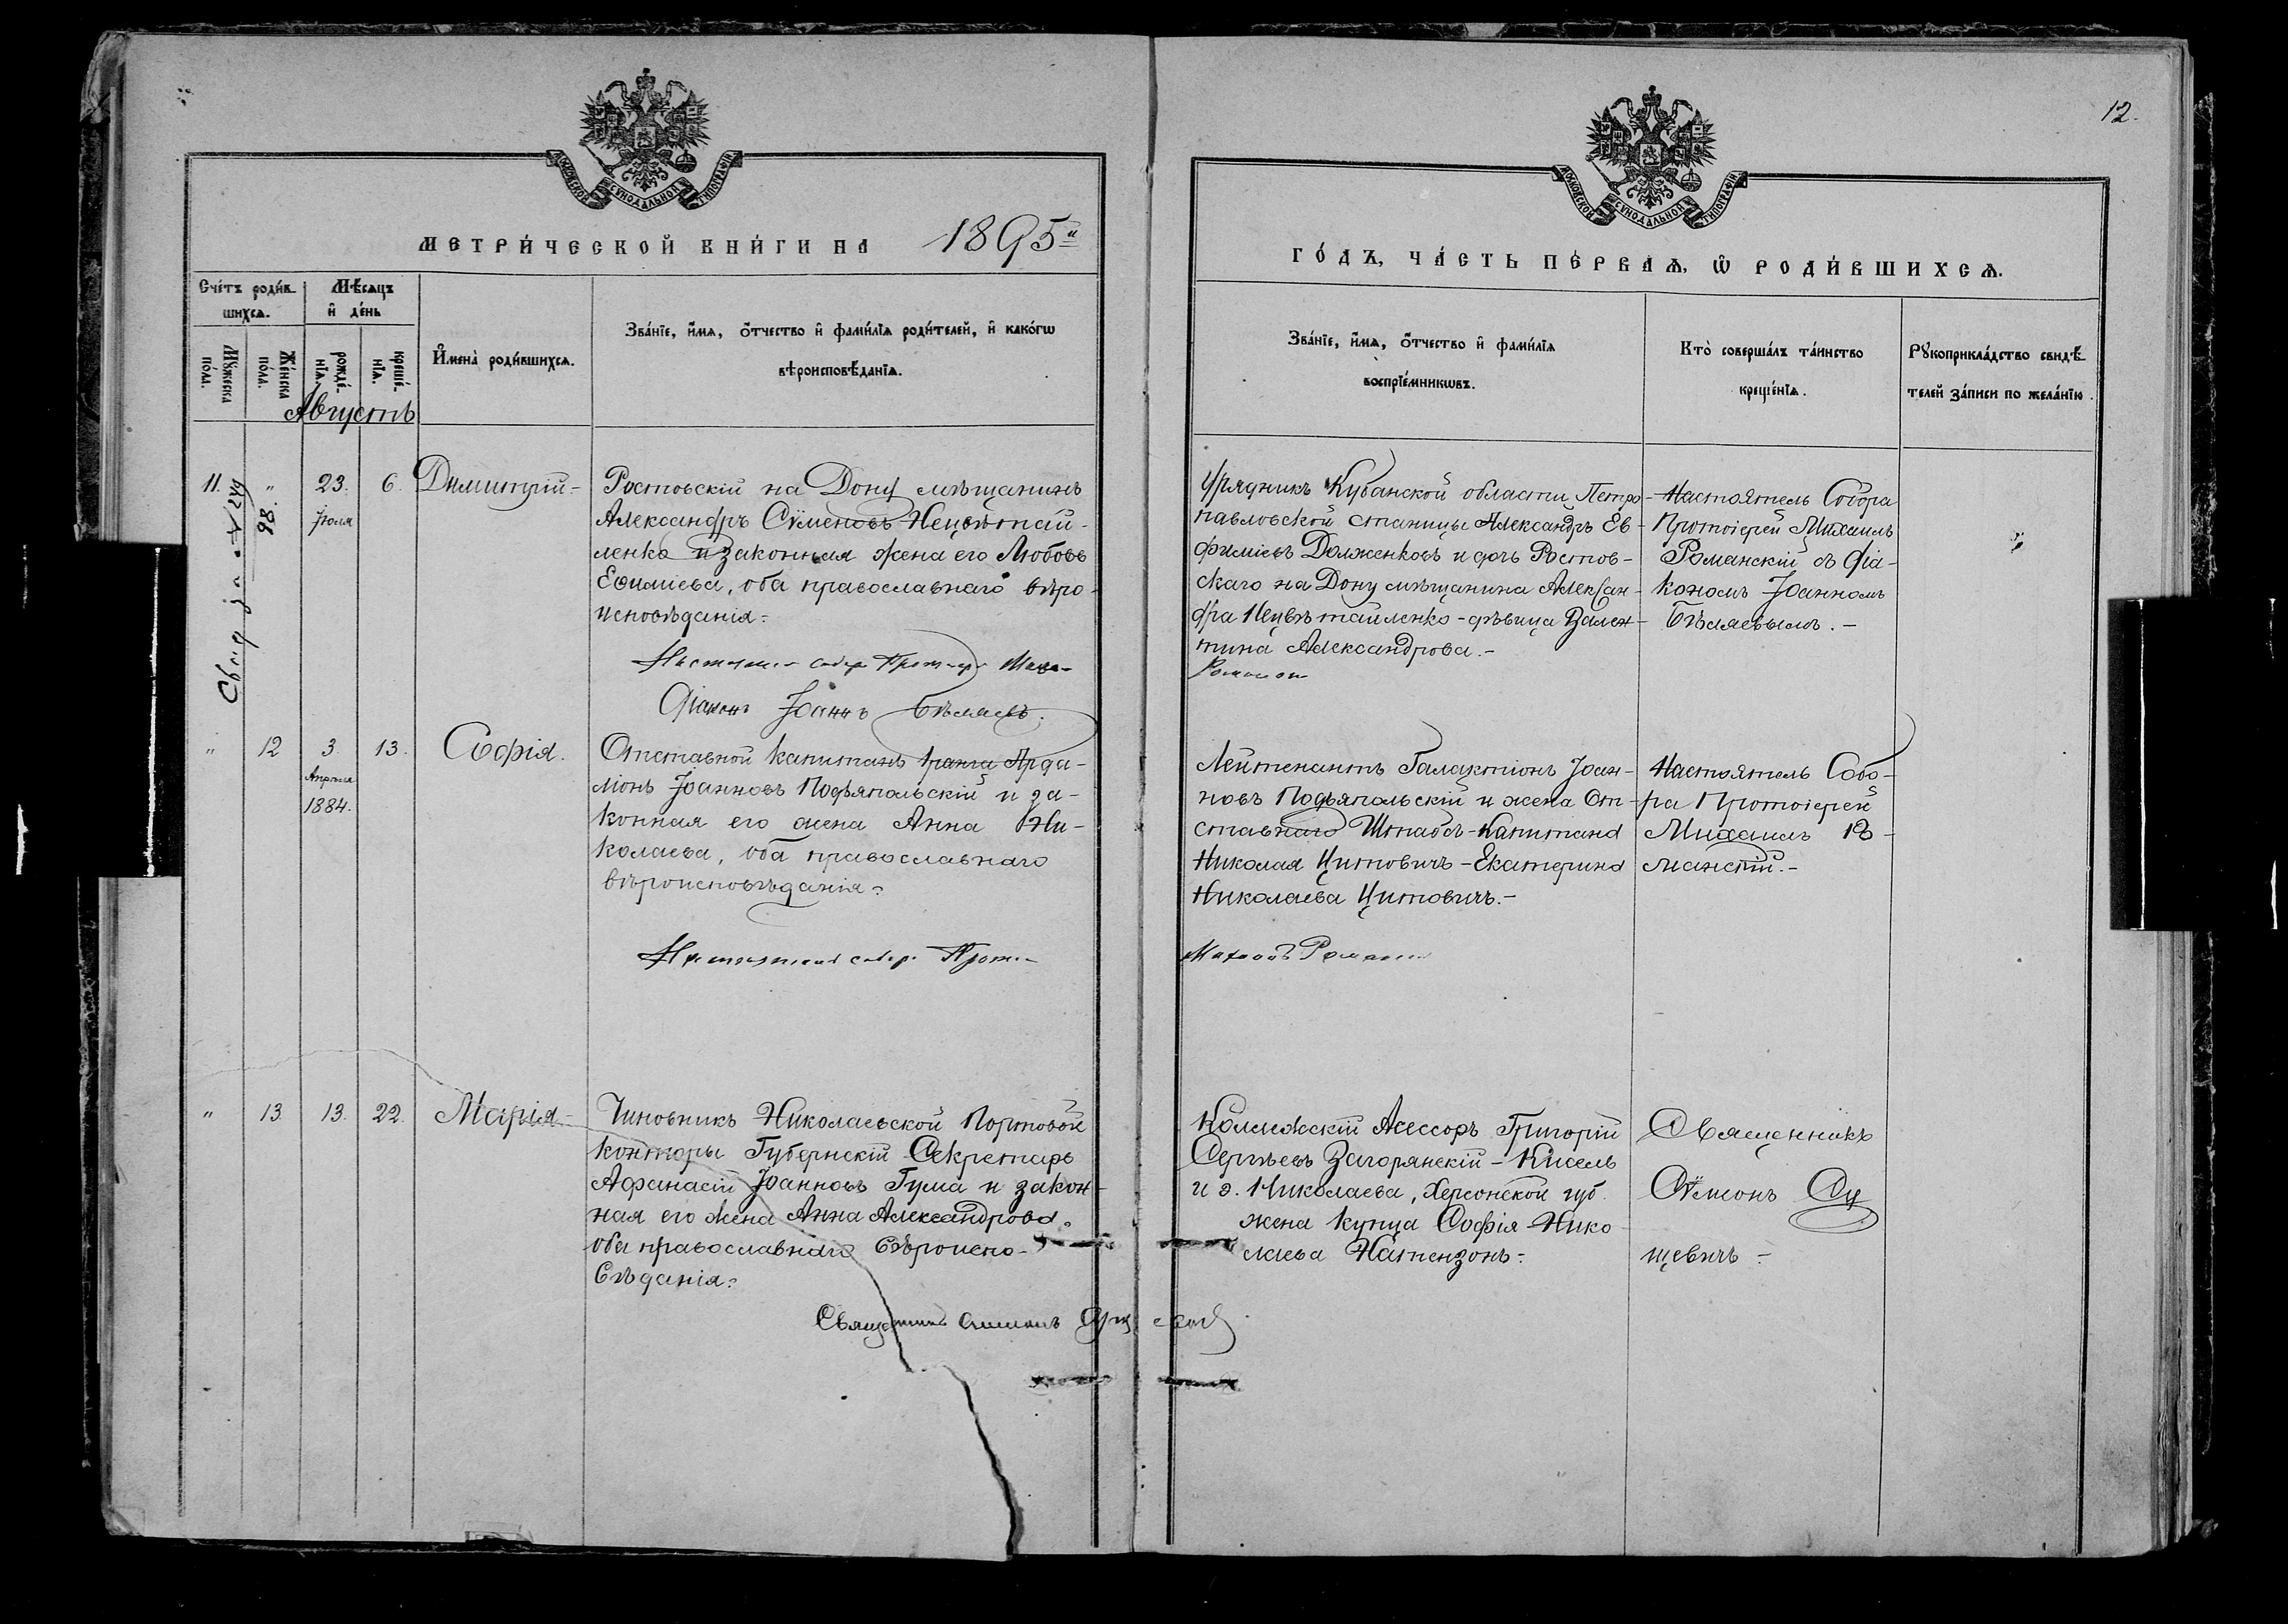 12.
МОСКОВСКОЙ СѴНОДАЛЬНОЙ ТИПОГРАФІИ
МОСКОВСКОЙ СѴНОДАЛЬНОЙ ТИПОГРАФІИ
МЕТРИ́ЧЕСКОЙ КНИ́ГИ НА 1895"
ГО́ДЪ, ЧА́СТЬ ПЕ́РВАѦ, Ѡ҆ РОДИ́ВШИХСѦ.
Сче́тъ роди́в-
шихсѧ.
Мѣ́сѧцъ
и҆ де́нь
Мꙋ́жеска
по́ла.
Же́нска
по́ла.
рожде́-
нїѧ.
креще́-
нїѧ.
И҆мена̀ роди́вшихсѧ.
Зва́нїе, и҆́мѧ, ѻ҆́тчество и҆ фами́лїѧ роди́телей, и҆ како́гѡ
вѣроисповѣ́данїѧ.
Зва́нїе, и҆́мѧ, ѻ҆́тчество и҆ фами́лїѧ
воспрїе́мникѡвъ.
Кто̀ соверша́лъ та́инство
креще́нїѧ.
Рꙋкоприкла́дство свидѣ́-
телей за́писи по жела́нїю.
Августъ
11. " 23. 6. Димитрій-
Іюля
Свид за № 249
98.
Ростовскій на Дону мѣщанинъ
Александръ Сѵменовъ Нецвѣтай-
ленко и законная жена его Любовь
Еѳиміева, оба православнаго вѣро-
исповѣданія=
Діаконъ Іоаннъ Бѣляевъ.
Урядникъ Кубанской области Петро-
павловской станицы Александръ Ев-
фиміевъ Долженковъ и дочь Ростов-
скаго на Дону мѣщанина Алексан-
дра Нецвѣтайленко-дѣвица Вален-
тина Александрова.-
Настоятель Собора
Протоіерей Михаилъ
Романскій съ діа-
кономъ Іоанномъ
Бѣляевымъ.-
" 12 3. 13. Софія.
Апрѣля
1884.
Отставной капитанъ 1 ранга Арда-
ліонъ Іоанновъ Подъяпольскій и за-
конная его жена Анна Ни-
колаева, оба православнаго
вѣроисповѣданія=
Лейтенантъ Галактіонъ Іоан-
новъ Подъяпольскій и жена От-
ставнаго Штабсъ-Капитана
Николая Цитовичъ-Екатерина
Николаева Цитовичъ.-
Настоятель Собо-
ра Протоіерей
Михаилъ Ро-
манскій.-
" 13 13. 22. Марія-
Чиновникъ Николаевской Портовой
конторы Губернскій Секретарь
Афанасій Іоанновъ Гума и закон-
ная его жена Анна Александрова,
оба православнаго вѣроиспо-
вѣданія=
Коллежскій Асессоръ Григорій
Сергѣевъ Загорянскій-Кисель
и г. Николаева, Херсонской губ.
жена купца Софія Нико-
лаева Натензонъ=
Священникъ
Сѵмонъ Су
щевичъ-
Священникъ